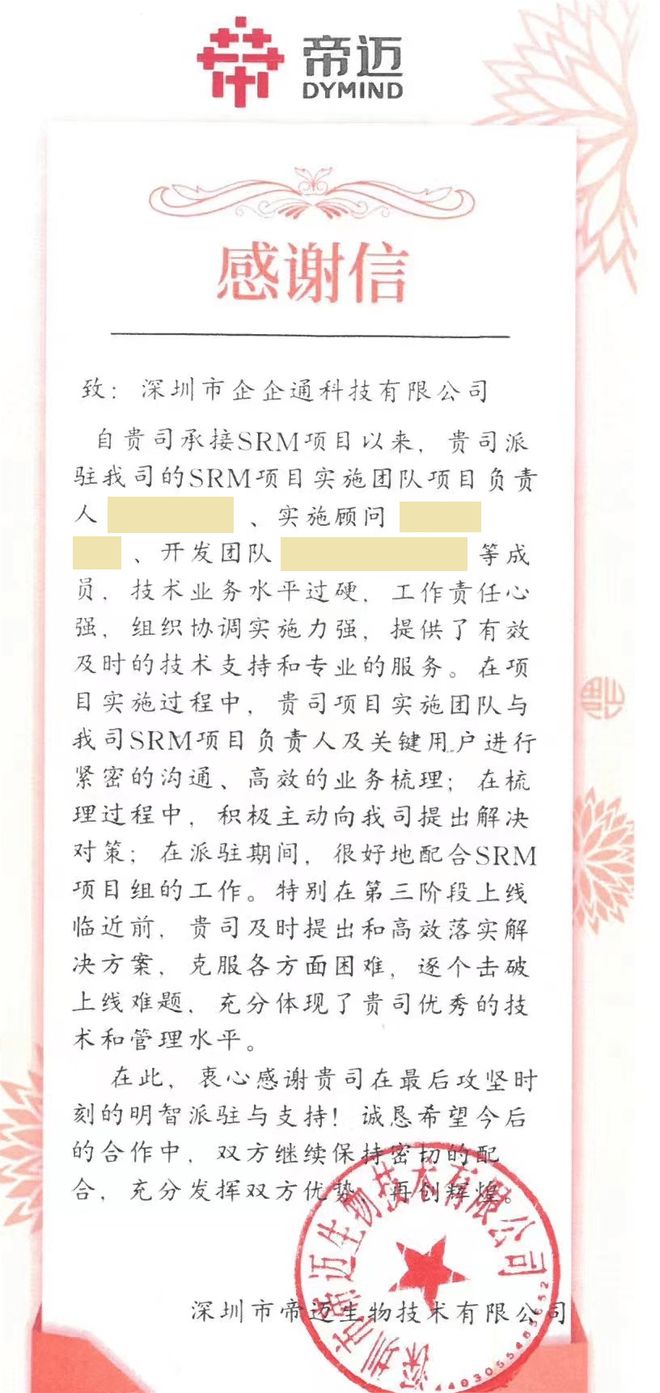 帝迈
DYMIND
感谢信
致：深圳市企企通科技有限公司
自贵司承接SRM项目以来，贵司派
驻我司的SRM项目实施团队项目负责
人 、实施顾问
、开发团队 等成
员，技术业务水平过硬，工作责任心
强，组织协调实施力强，提供了有效
及时的技术支持和专业的服务。在项
目实施过程中，贵司项目实施团队与
我司SRM项目负责人及关键用户进行
紧密的沟通、高效的业务梳理；在梳
理过程中，积极主动向我司提出解决
对策；在派驻期间，很好地配合SRM
项目组的工作。特别在第三阶段上线
临近前，贵司及时提出和高效落实解
决方案，克服各方面困难，逐个击破
上线难题，充分体现了贵司优秀的技
术和管理水平。
在此，衷心感谢贵司在最后攻坚时
刻的明智派驻与支持！诚恳希望今后
的合作中，双方继续保持密切的配
合，充分发挥双方优势，再创辉煌。
深圳市帝迈生物技术有限公司
深圳市帝迈生物技术有限公司